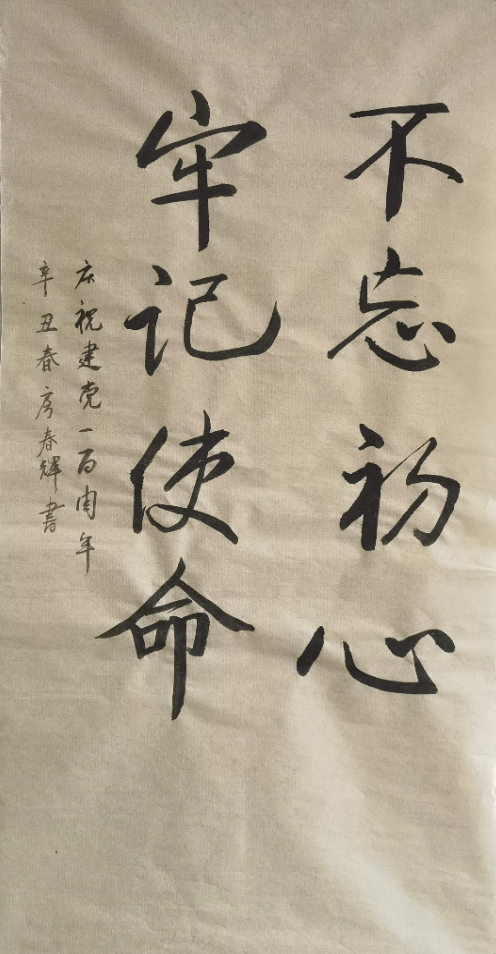 不忘初心
牢记使命
庆祝建党一百周年
辛丑春房春辉书